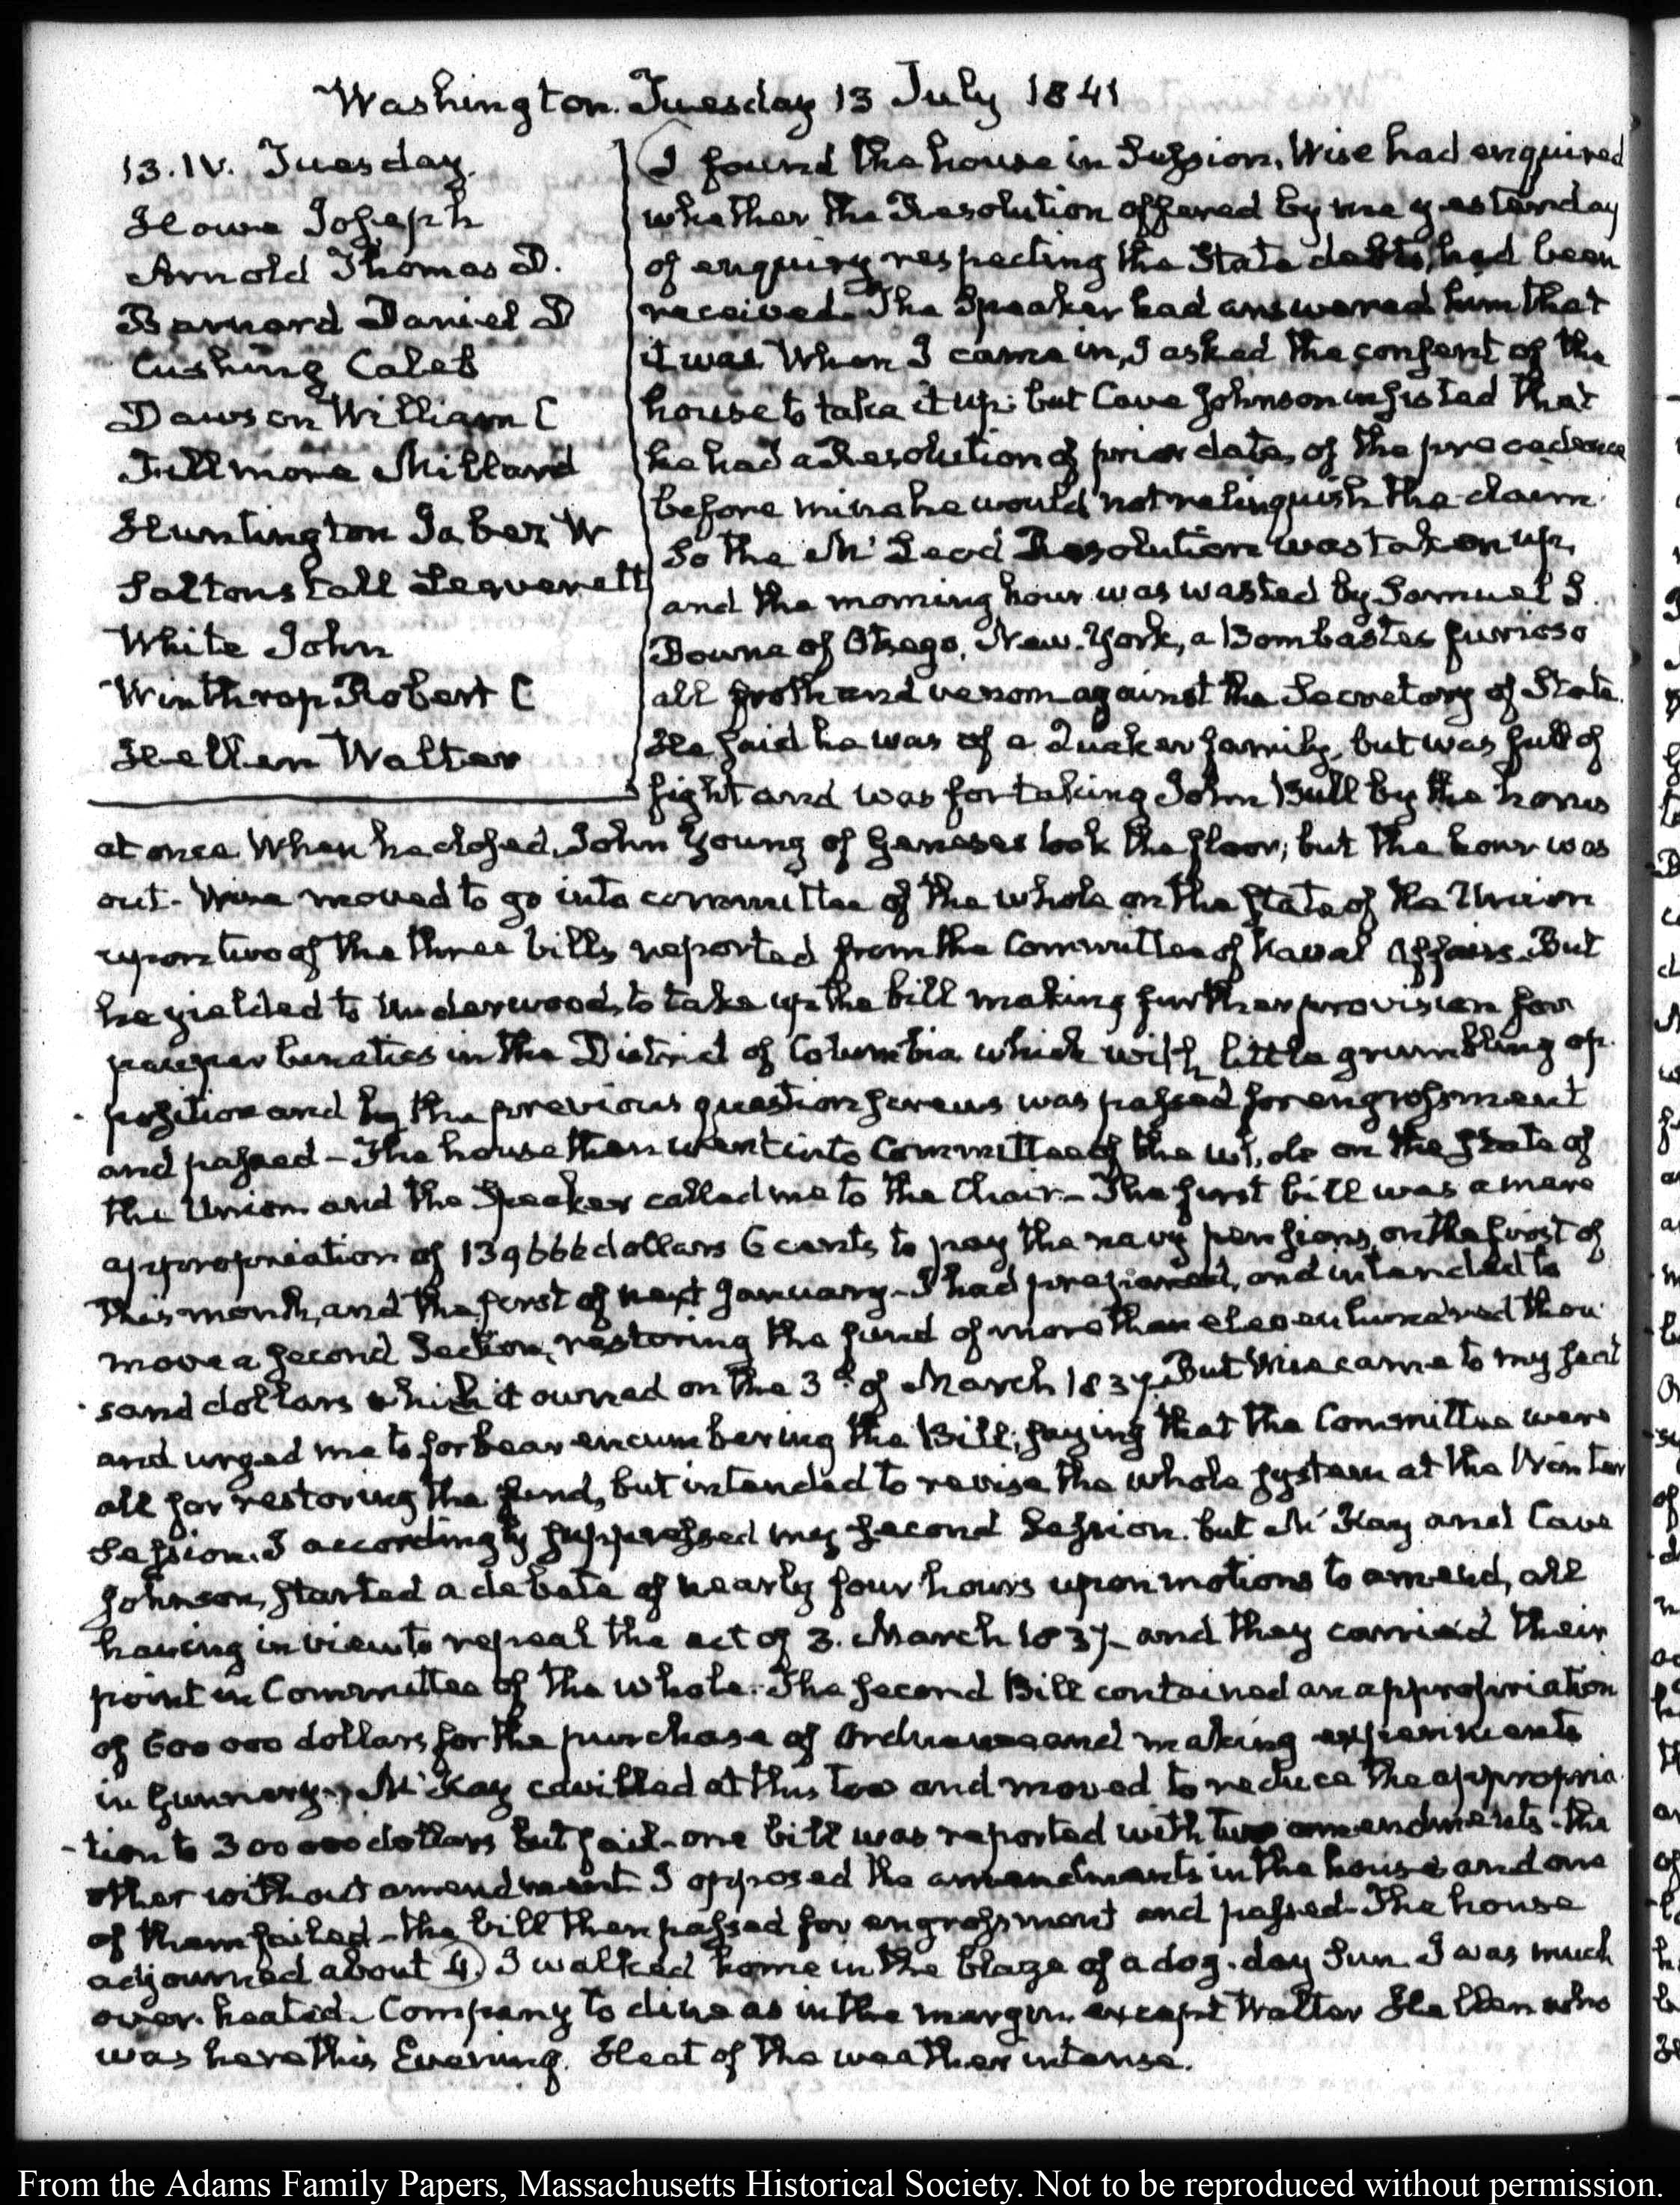 Washington. Tuesday 13 July 1841
13. IV. Tuesday.
Howe Joseph
Arnold Thomas D.
Barnard Daniel D
Cushing Caleb
Dawson William C
Fillmore Millard
Huntington Jabez W
Saltonstall Leverett
White John
Winthrop Robert C
Hellen Walter
I found the house in Session. Wise had enquired
whether the Resolution offered by me yesterday
of enquiry respecting the State debts, had been
received. The Speaker had answered him that
it was. When I came in, I asked the consent of the
house to take it up: but Cave Johnson insisted that
he had a Resolution of prior date, of the precedence
before mine he would not relinquish the claim.
So the McLeod Resolution was taken up,
and the morning hour was wasted by Samuel S.
Bowne of Otsego, New-York, a Bombastes furioso
all froth and venom against the Secretary of State.
He said he was of a Quaker family, but was full of
fight and was for taking John Bull by the horns
at once. When he closed, John Young of Geneseo took the floor; but the hour was
out. Wise moved to go into committee of the whole on the state of the Union
upon two of the three bills reported from the Committee of Naval Affairs. But
he yielded to Underwood, to take up the bill making further provision for
pauper lunatics in the District of Columbia which with little grumbling op-
position and by the previous question screws was passed for engrossment
and passed - The house then went into Committee of the whole on the State of
the Union and the Speaker called me to the Chair - The first bill was a mere
appropriation of 139666 dollars 6 cents to pay the navy pensions, on the first of
this month, and the first of next January - I had prepared, and intended to
move a second Section, restoring the fund of more than eleven hundred thou-
sand dollars which it owned on the 3d. of March 1837. But Wise came to my seat
and urged me to forbear encumbering the Bill; saying that the Committee were
all for restoring the fund, but intended to revise the whole system at the Winter
Session. I accordingly suppressed my second Session. but McKay and Cave
Johnson, started a debate of nearly four hours upon motions to amend, all
having in view to repeal the act of 3. March 1837 - and they carried their
point in Committee of the whole. The second Bill contained an appropriation
of 600 000 dollars for the purchase of Ordnance and making experiments
in Gunnery - McKay cavilled at this too and moved to reduce the appropria-
tion to 300 000 dollars but fail - one bill was reported with two amendments - the
other without amendment. I opposed the amendments in the house and one
of them failed - the bill then passed for engrossment and passed - The house
adjourned about 4. I walked home in the blaze of a dog-day Sun. I was much
over-heated. Company to dine as in the margin except Walter Hellen who
was here this Evening. Heat of the weather intense.
From the Adams Family Papers, Massachusetts Historical Society. Not to be reproduced without permission.